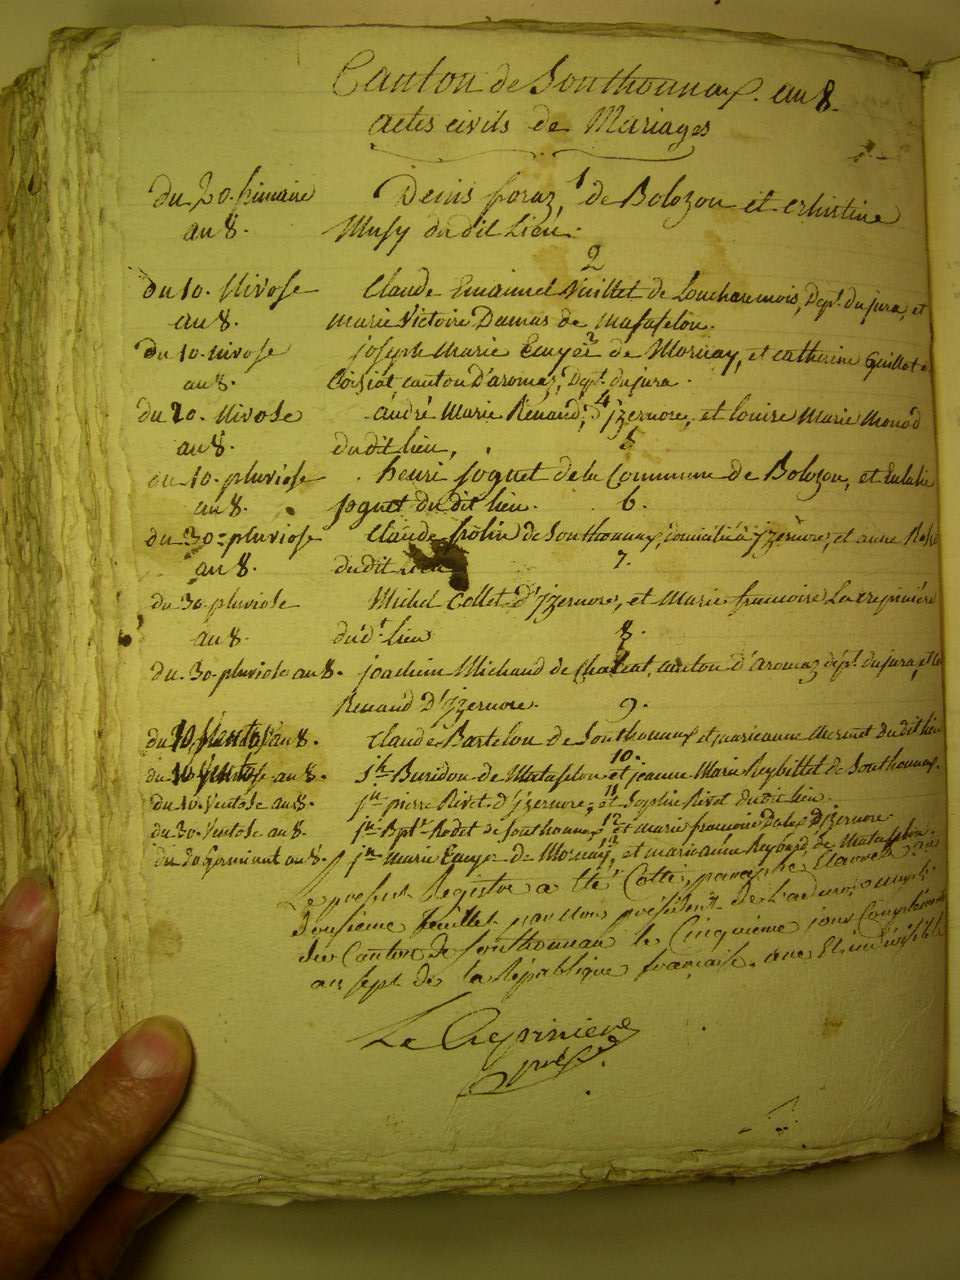 Canton de Sonthonnax. an 8.
actes civils de Mariages
1
du 20. frimaire Denis foraz, de Bolozon et christine
an 8. Musy du dit Lieu.
2
du 10. Nivose Claude Emanuel Vuillet de Loucharemois, Dept. du jura, et
an 8. marie Victoire Dumas de Matafelon.
3
du 10. nivose joseph Marie Ecuyer de Mornay, et catherine Guillot de
an 8. Coisiat canton D'aromaz, Dept. du jura.
4
du 20. Nivose andré Marie Renaud, d'jzernore, et louise Marie Monod
an 8. du dit lieu,
5
du 10. pluviose henri joguet de la Commune de Bolozon, et Eulalie
an 8. joguet du dit lieu.
6.
du 30 = pluviose Claude frolin de Sonthonnax, domicilié à jzernore, et
an 8. du dit Lieu
7.
du 30. pluviose Michel Collet D'jzernore, et Marie francoise Lacrepiniere
an 8. du dt. lieu
8.
du 30. pluviose an 8. joachim Michaud de Chatat, canton d'aromaz dept. du jura, et
Renaud D'jzernore.
9.
du 10 Ventose an 8. Claude Bartelon de Sonthonnax et marieanne mermet du dit lieu
10.
du 10 Ventose an 8. jh Buridon de Matafelon et jeanne Marie Reybillet de Sonthonnax.
11
du 10. Ventose an 8. jn pierre Rivet d'jzernore, et Sophie Rivet du dit lieu.
12
du 30. Ventose an 8. jn Bpte Rodet de Sonthonnax et marie francoise Dales D'jzernore
13
du 20 Germinal an 8. jn Marie Ecuyer de Mornay, et marieanne Reybard de Matafelon.
Le present Registre a été Cotté, paraphé
Dousieme feuillet par nous président de L'administration
du Canton de Sonthonnax le Cinquieme jour Complementaire
an sept de la République française. une Et indivisible
La Crepiniere